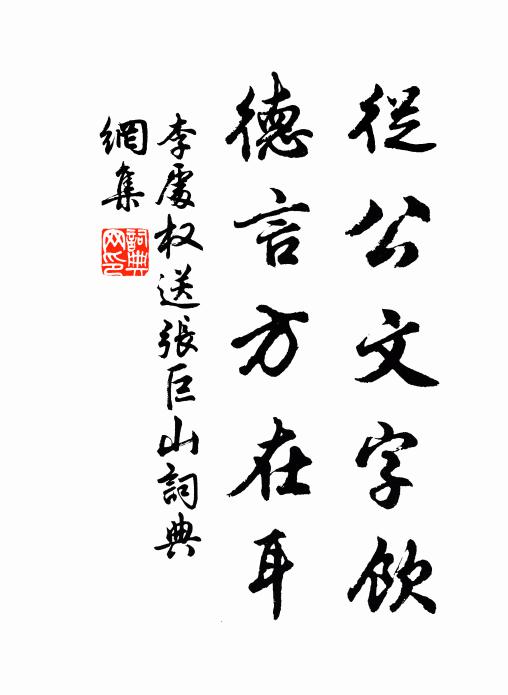 從公文字飲
德言方在耳
李處权送張巨山詞典
網集
詞典
网印